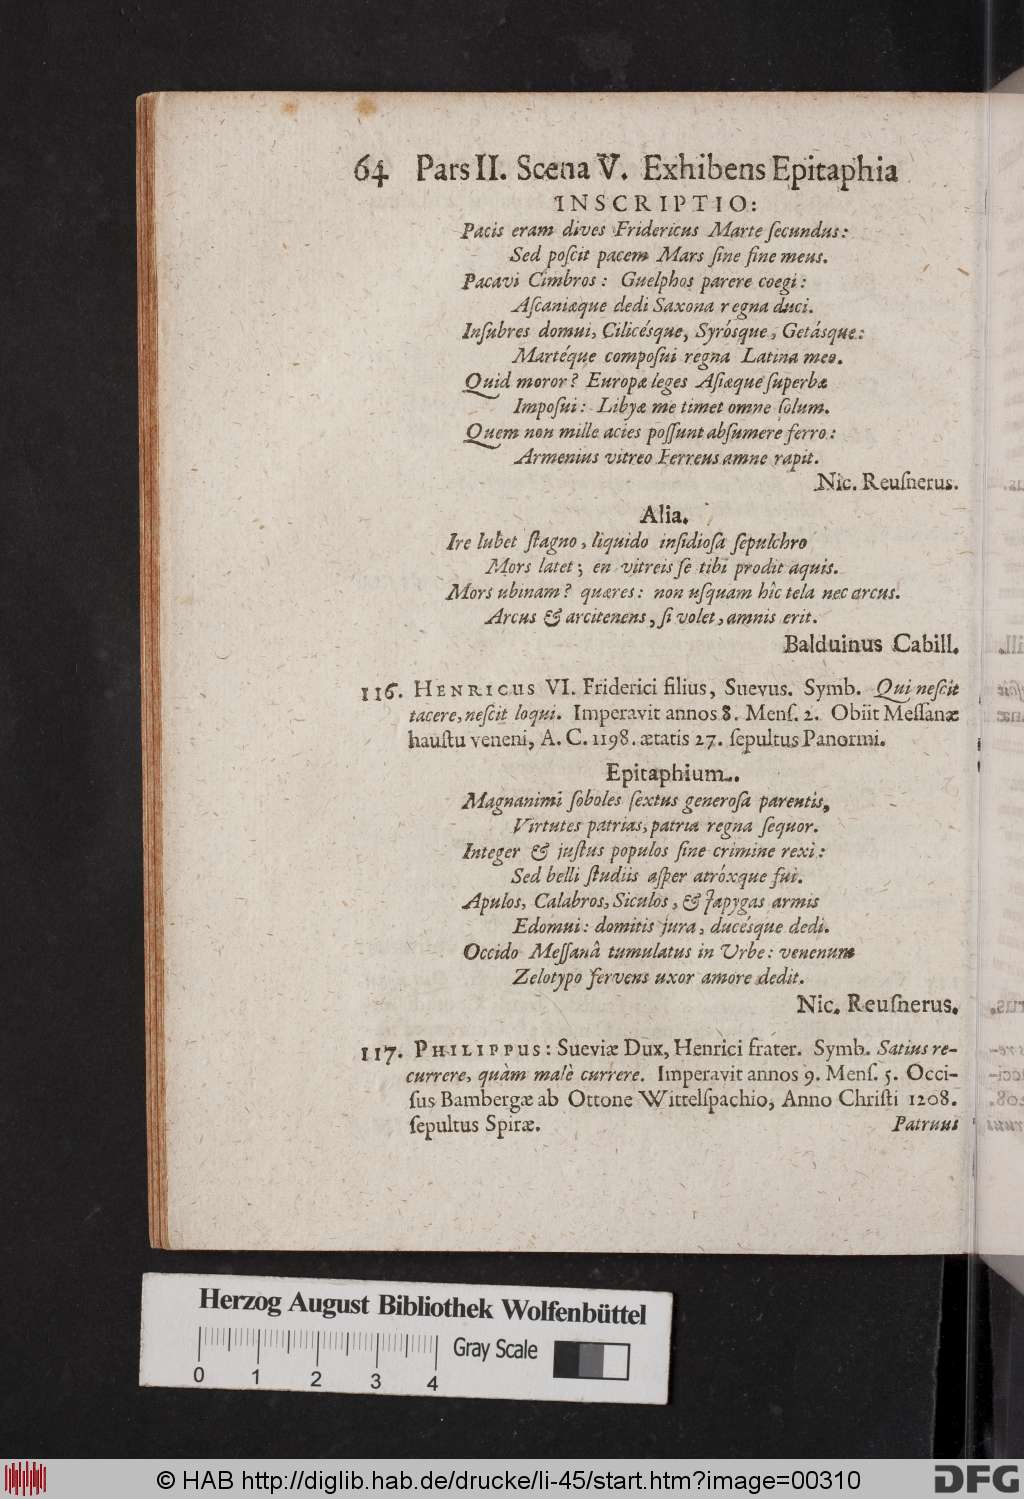 64 Pars II. Scena V. Exhibens Epitaphia
INSCRIPTIO:
Pacis eram dives Fridericus Marte ſecundus:
Sed poſcit pacem Mars ſine fine meus.
Pacavi Cimbros: Guelphos parere coegi:
Aſcaniæque dedi Saxona regna duci.
Inſubres domui, Cilicésque, Syrósque, Getásque:
Martéque compoſui regna Latina meo.
Quid moror? Europæ leges Aſiæque ſuperbæ
Impoſui: Libyæ me timet omne ſolum.
Quem non mille acies poſſunt abſumere ferro:
Armenius vitreo Ferreus amne rapit.
Nic. Reuſnerus.
Alia.
Ire lubet ſtagno, liquido inſidioſa ſepulchro
Mors latet; en vitreis ſe tibi prodit aquis.
Mors ubinam? quæres: non uſquam hîc tela nec arcus.
Arcus & arcitenens, ſi volet, amnis erit.
Balduinus Cabill.
116. HENRICUS VI. Friderici filius, Suevus. Symb. Qui neſcit
tacere, neſcit loqui. Imperavit annos 8. Menſ. 2. Obiit Meſſanæ
hauſtu veneni, A. C. 1198. ætatis 27. ſepultus Panormi.
Epitaphium.
Magnanimi ſoboles ſextus generoſa parentis,
Virtutes patrias, patria regna ſequor.
Integer & juſtus populos ſine crimine rexi:
Sed belli ſtudiis aſper atróxque fui.
Apulos, Calabros, Siculos, & Japygas armis
Edomui: domitis jura, ducésque dedi.
Occido Meſſanâ tumulatus in Urbe: venenum
Zelotypo fervens uxor amore dedit.
Nic. Reuſnerus.
117. PHILIPPUS: Sueviæ Dux, Henrici frater. Symb. Satius re-
currere, quàm malè currere. Imperavit annos 9. Menſ. 5. Occi-
ſus Bambergæ ab Ottone Wittelſpachio, Anno Chriſti 1208.
ſepultus Spiræ. Patruus
Herzog August Bibliothek Wolfenbüttel
Gray Scale
0 1 2 3 4
© HAB http://diglib.hab.de/drucke/li-45/start.htm?image=00310
DFG